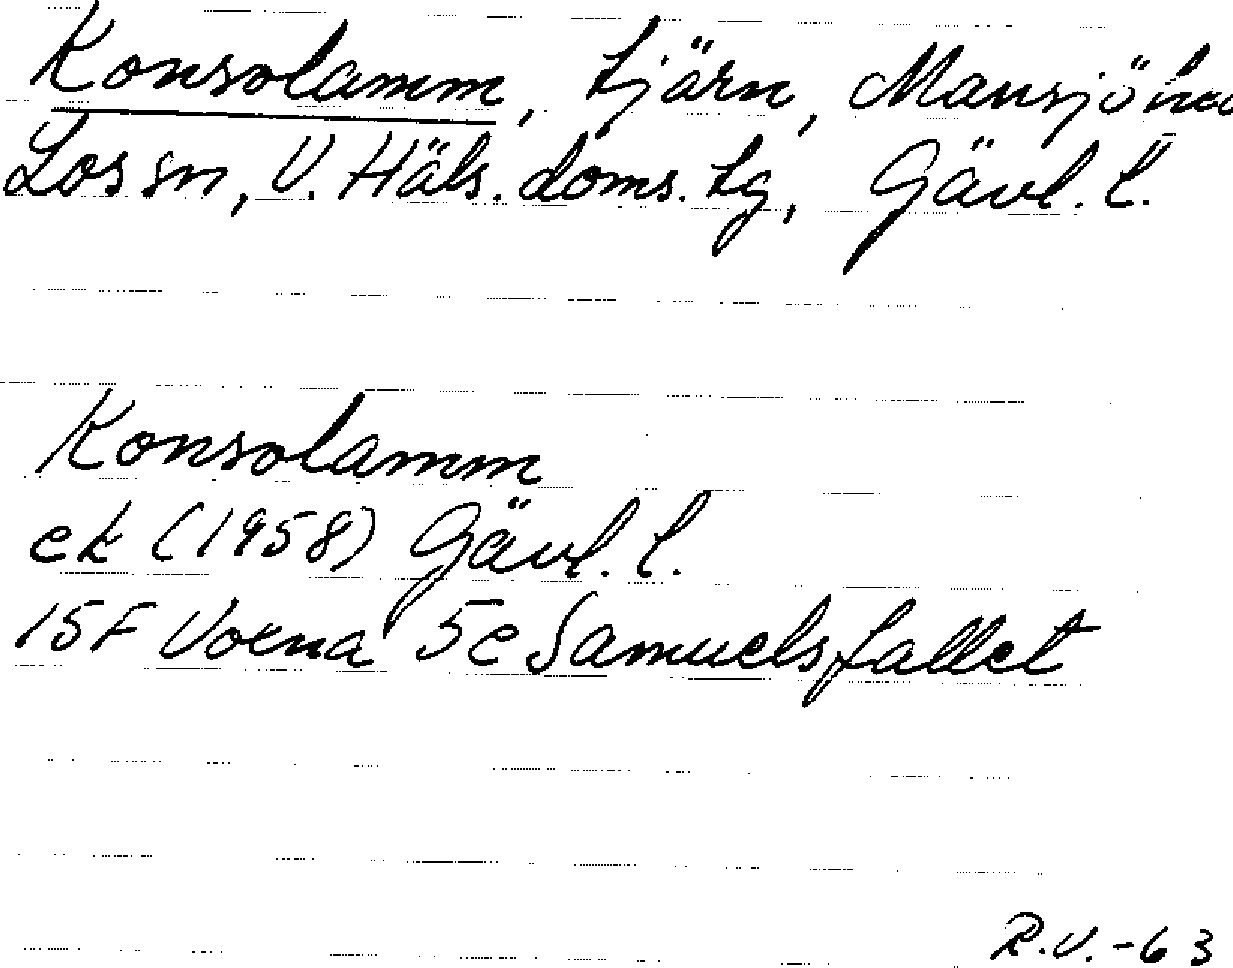 Konsolamm, tjärn, Mansjöha
Los sn, V. Häls. doms. tg, Gävl. l.
Konsolamm
ek (1958) Gävl. l.
15F Voxna 5c Samuelsfallet
R.V.-63